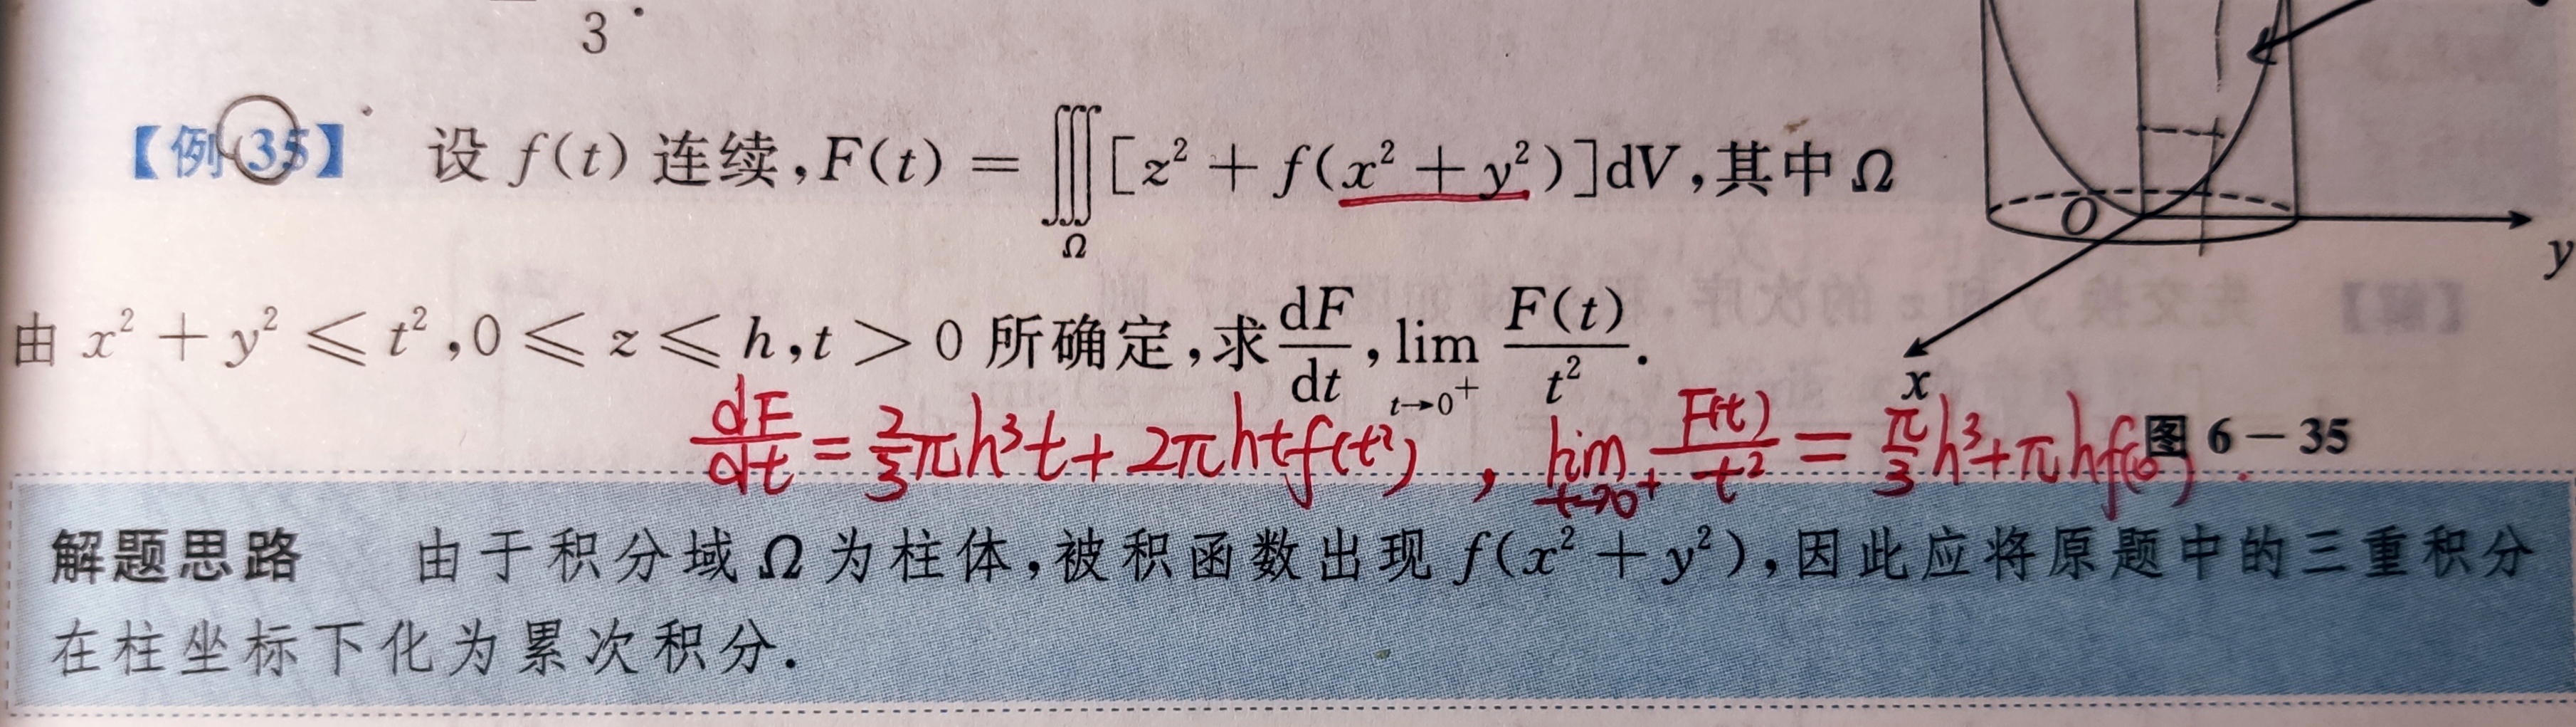 3 .
【例 35】 设 f(t) 连续,F(t) = ∭_Ω [z² + f(x² + y²)]dV,其中 Ω
由 x² + y² ⩽ t²,0 ⩽ z ⩽ h,t > 0 所确定,求 dF/dt, lim_{t→0⁺} F(t)/t².
O
y
x
dF/dt = 2/3 πh³t + 2πhtf(t²) , lim_{t→0⁺} F(t)/t² = π/3 h³ + πhf(0) .
图 6-35
解题思路 由于积分域 Ω 为柱体,被积函数出现 f(x² + y²),因此应将原题中的三重积分
在柱坐标下化为累次积分.